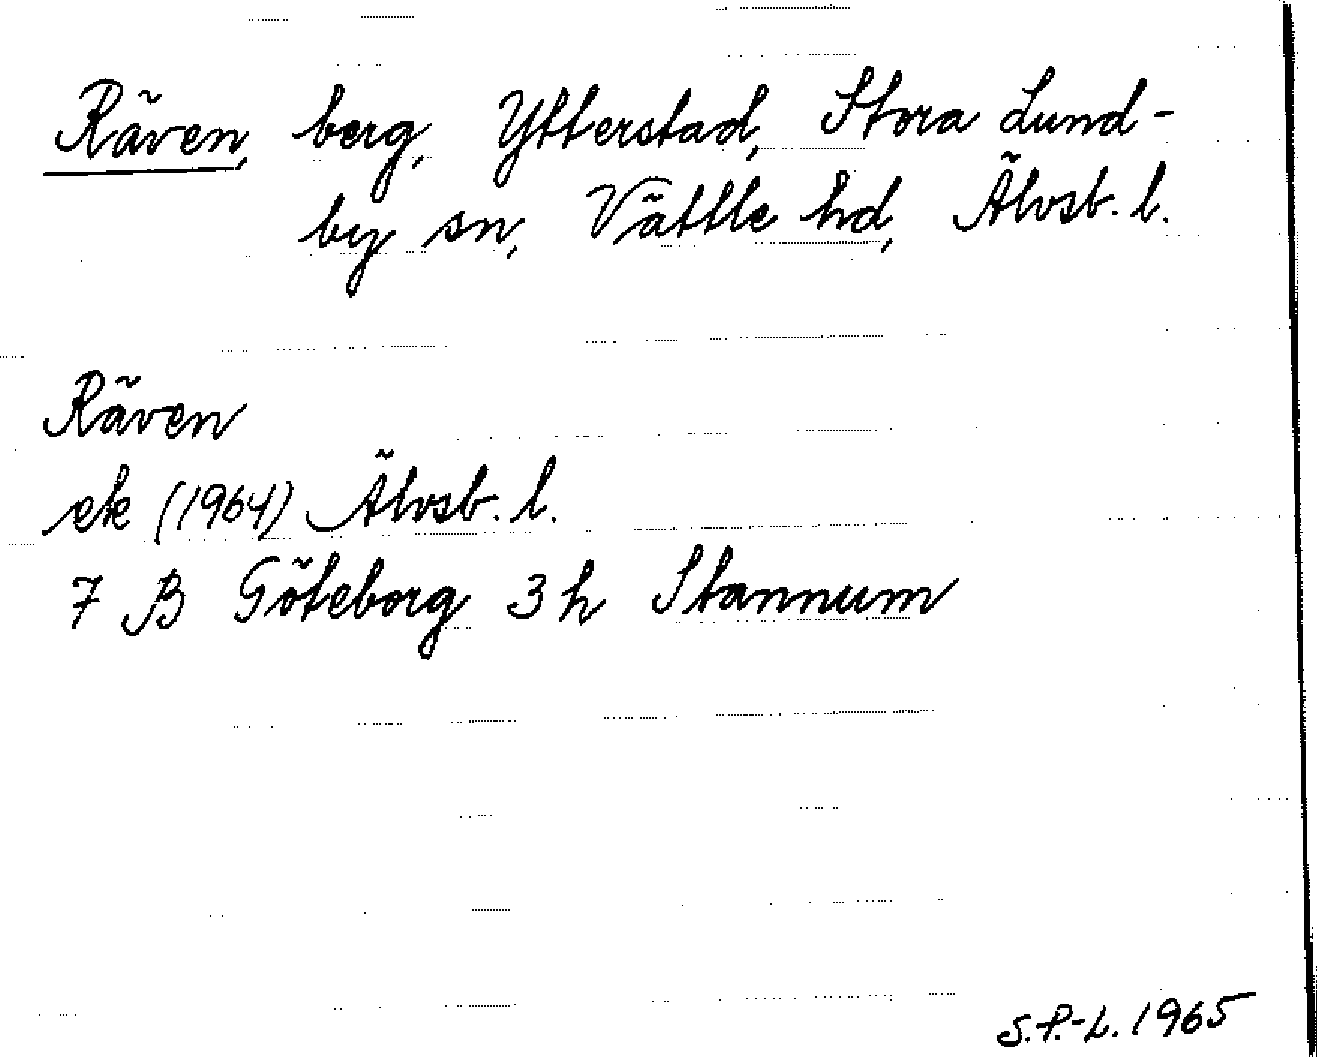 Räven, berg, Ytterstad, Stora Lund-
by sn, Vättle hd, Älvsb. l.
Räven
ek (1964) Älvsb. l.
7 B Göteborg 3 h Stannum
S.P.-L. 1965